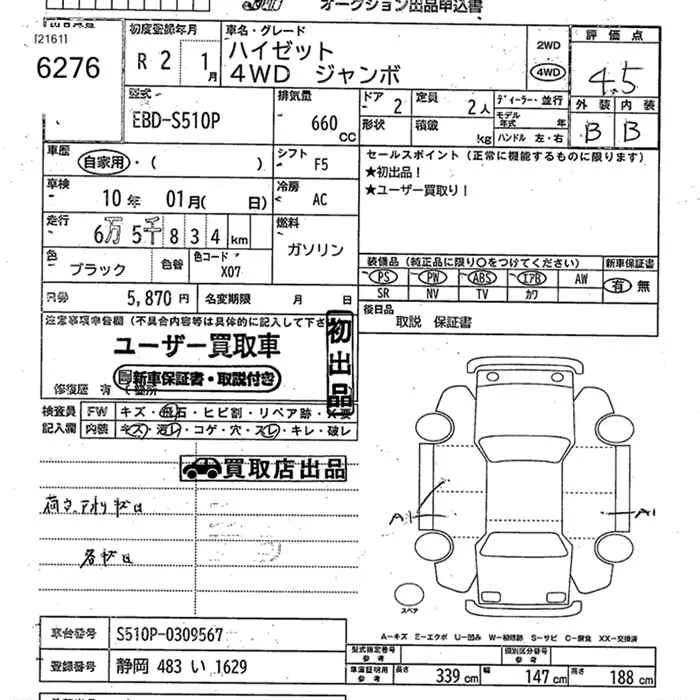 オークション出品申込書
[2161]
6276
初度登録年月
R 2 1月
車名・グレード
ハイゼット
4WD ジャンボ
2WD
4WD
評価点
4.5
外装 内装
B B
型式
EBD-S510P
排気量
660 CC
ドア 2
定員 2人
ディーラー・並行
形状
積載 kg
モデル年式 年
ハンドル 左・右
車歴
自家用・( )
シフト F5
セールスポイント(正常に機能するものに限ります)
★初出品!
★ユーザー買取り!
車検
10年 01月( 日)
冷房 AC
走行
6万 5千 8 3 4 km
燃料
ガソリン
色
ブラック
色替
色コード
X07
装備品(純正品に限り○をつけてください)
新車保証書
PS PW ABS エアB AW
SR NV TV カワ
有 無
5,870円
名変期限 月 日
後日品
取説 保証書
注意事項申告欄(不具合内容等は具体的に記入して下さ
ユーザー買取車
新車保証書・取説付き
初出品
修復歴 有
検査員記入欄
FW キズ・飛石・ヒビ割・リペア跡・X要
内装 キズ・汚レ・コゲ・穴・スレ・キレ・破レ
買取店出品
A1
A1
スペア
A—キズ E—エクボ U—凹み W—補修跡 S—サビ C—腐食 XX—交換済
車台番号 S510P-0309567
登録番号 静岡 483 い 1629
型式指定番号 参考
類別区分番号 参考
車庫証明用参考
長さ 339 cm 幅 147 cm 高さ 188 cm